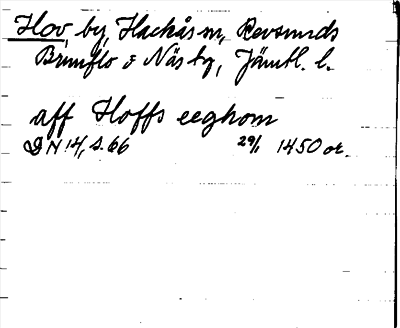 Hov, by, Hackås sn, Revsunds
Brunflo o Näs tg, Jämtl. l.
aff Hoffs eeghom
DN 14, s. 66 29/1 1450 or.